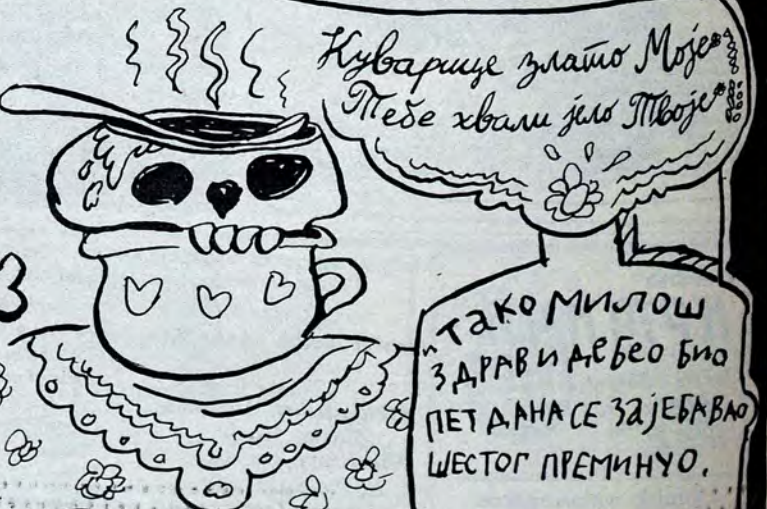 Куварице злато Моје
Тебе хвали јело Твоје
"Тако Милош
здрав и дебео био
ПЕТ ДАНА СЕ ЗАЈЕБАВАО
ШЕСТОГ ПРЕМИНУО.